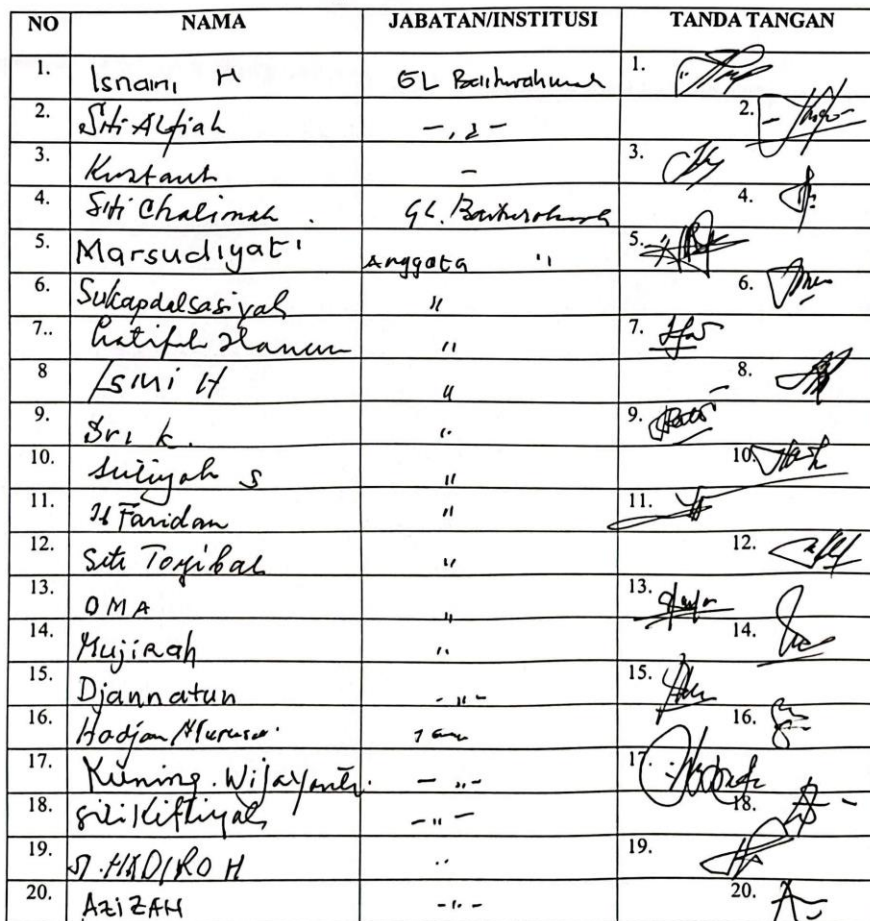 NO NAMA JABATAN/INSTITUSI TANDA TANGAN
1. Isnaini H GL Baiturahmah 1.
2. Siti Alfiah - " - 2.
3. - 3.
4. Siti Chalimah . GL. Baiturohmah 4.
5. Marsudiyati Anggota " 5.
6. " 6.
7.. Hanum " 7.
8 Ismi H " 8.
9. Sri K. " 9.
10. Suliyah S " 10.
11. Faridah " 11.
12. Siti Toyibah " 12.
13. OMA " 13.
14. Mujirah " 14.
15. Djannatun - " - 15.
16. Hadjan 16.
17. Kuning. Wijayanti. - " - 17.
18. Siti Kiftiyah - " - 18.
19. HADIROH " 19.
20. AZIZAH - " - 20.